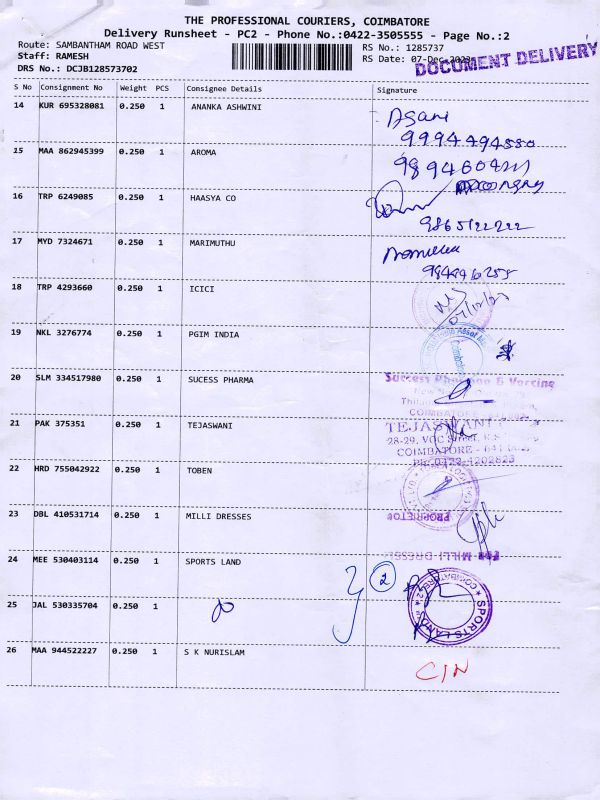 THE PROFESSIONAL COURIERS, COIMBATORE
Delivery Runsheet - PC2 - Phone No.:0422-3505555 - Page No.:2
Route: SAMBANTHAM ROAD WEST RS No.: 1285737
Staff: RAMESH RS Date: 07-Dec-2023
DRS No.: DCJB128573702
DOCUMENT DELIVERY
S No Consignment No Weight PCS Consignee Details Signature
14 KUR 695328081 0.250 1 ANANKA ASHWINI
9994494580
15 MAA 862945399 0.250 1 AROMA
16 TRP 6249085 0.250 1 HAASYA CO
9865122222
17 MYD 7324671 0.250 1 MARIMUTHU
18 TRP 4293660 0.250 1 ICICI
07/12/23
19 NKL 3276774 0.250 1 PGIM INDIA
Coimbatore
20 SLM 334517980 0.250 1 SUCESS PHARMA
Success Pharma & Vaccine
COIMBATORE
21 PAK 375351 0.250 1 TEJASWANI
TEJASWANI
28-29, VOC Street,
COIMBATORE - 641
22 HRD 755042922 0.250 1 TOBEN
PROPRIETOR
23 DBL 410531714 0.250 1 MILLI DRESSES
FOR MILLI DRESSES
24 MEE 530403114 0.250 1 SPORTS LAND
2
SPORTS LAND
COIMBATORE
25 JAL 530335704 0.250 1
26 MAA 944522227 0.250 1 S K NURISLAM
CIN